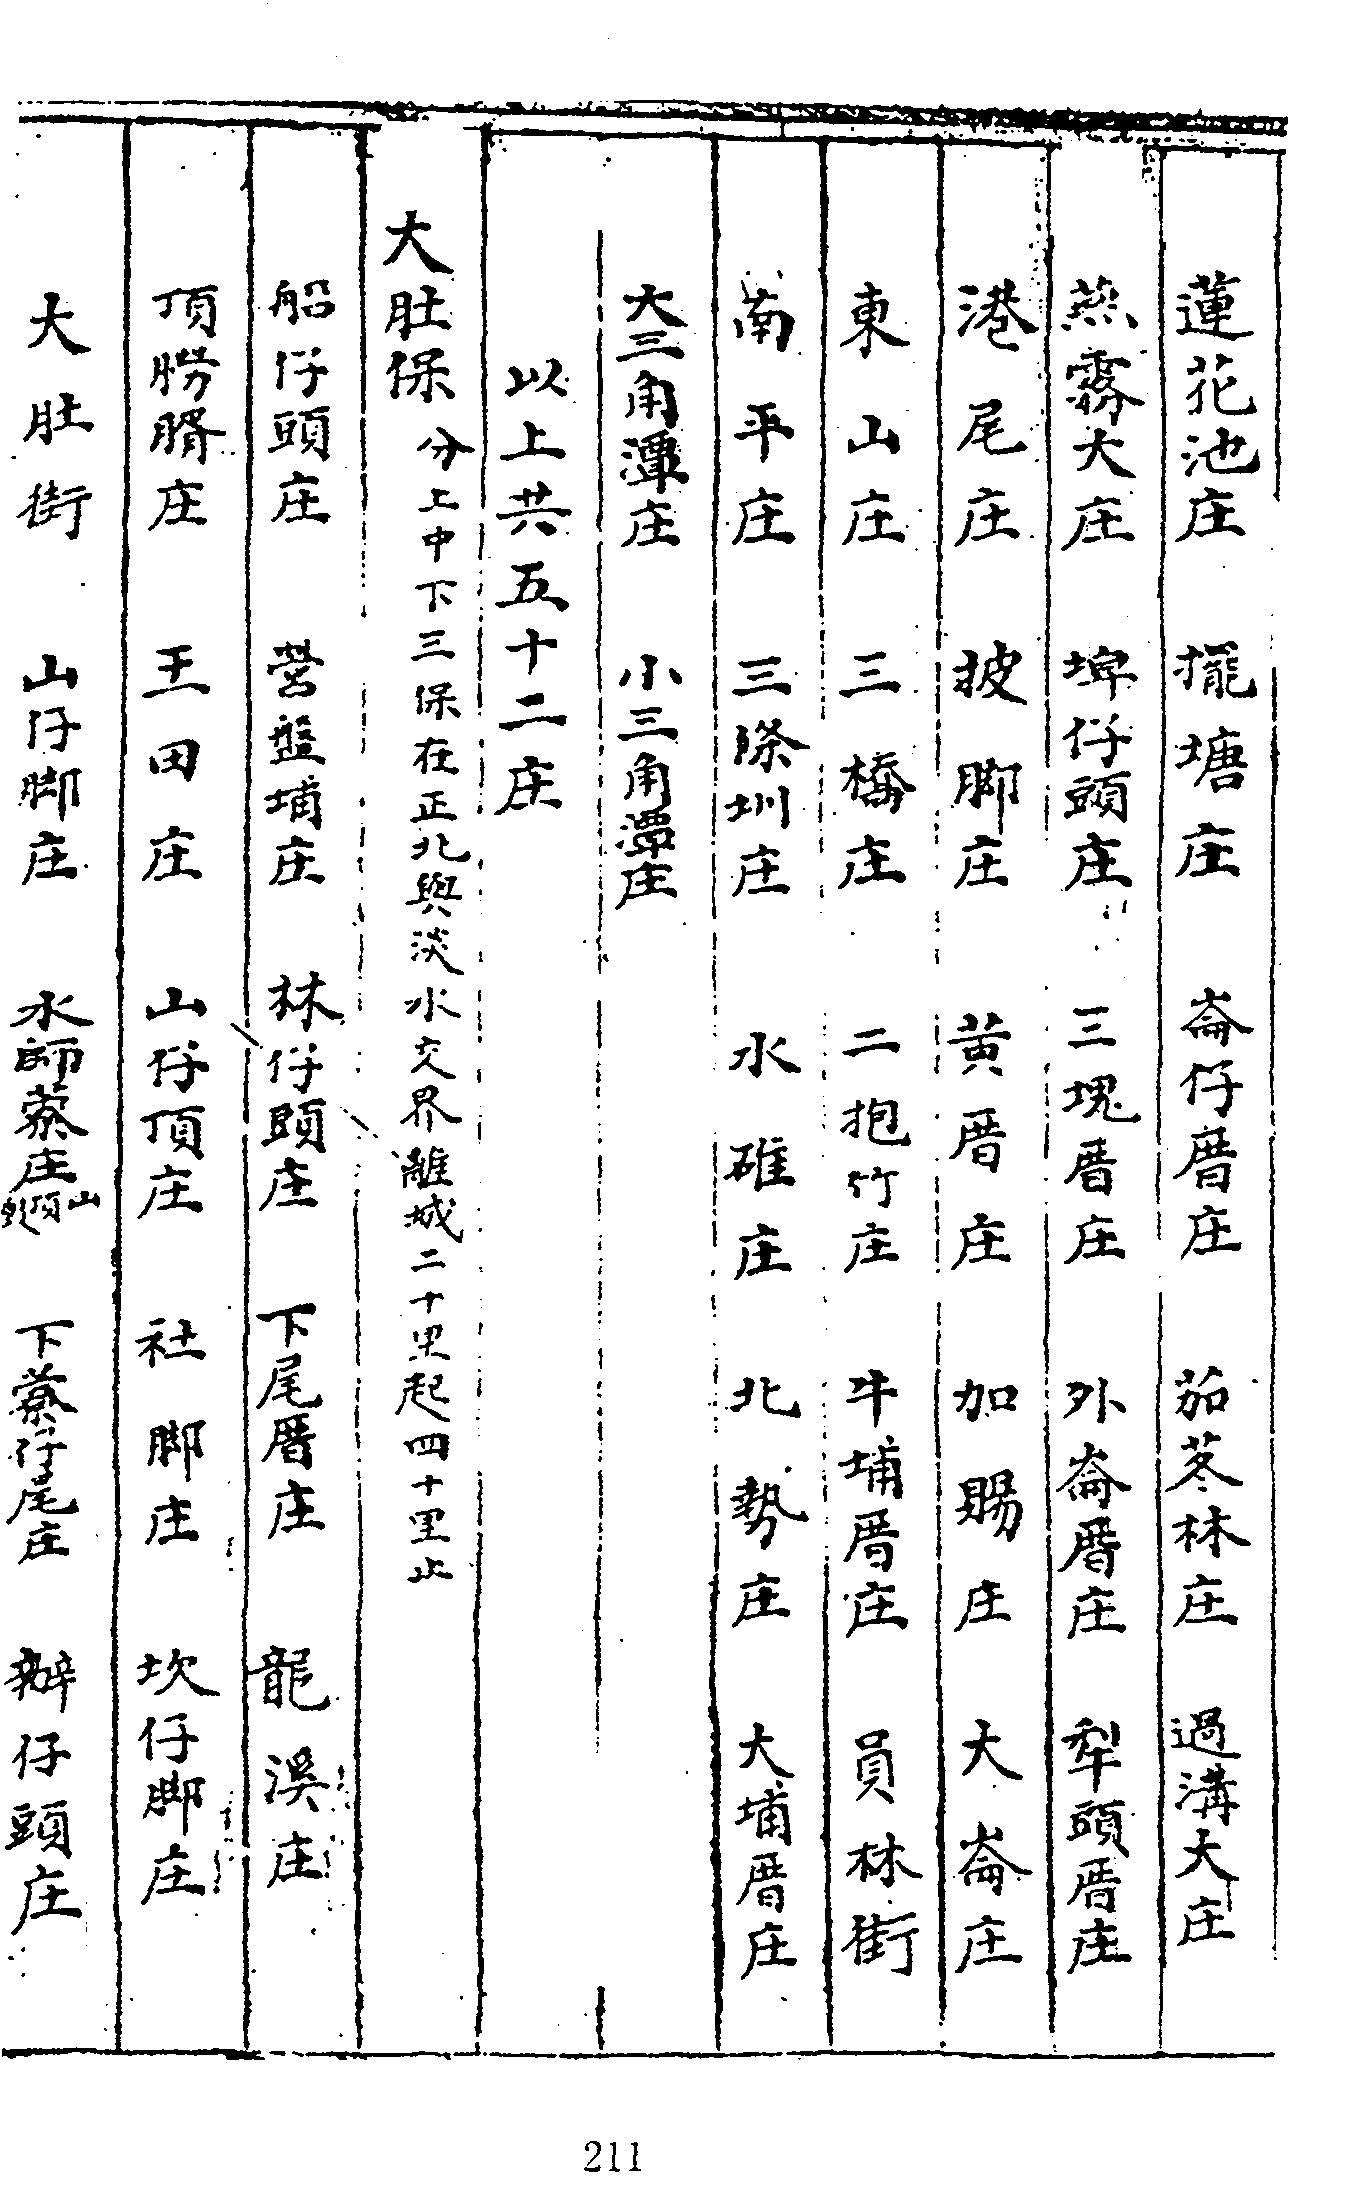 蓮花池庄　擺塘庄　崙仔厝庄　茄苳林庄　過溝大庄
燕霧大庄　埤仔頭庄　三塊厝庄　外崙厝庄　犁頭厝庄
港尾庄　披脚庄　黄厝庄　加賜庄　大崙庄
東山庄　三橋庄　二抱竹庄　牛埔厝庄　員林街
南平庄　三條圳庄　水碓庄　北勢庄　大埔厝庄
大三角潭庄　小三角潭庄
以上共五十二庄
大肚保　分上中下三保在正北與淡水交界離城二十里起四十里止
船仔頭庄　營盤埔庄　林仔頭庄　下尾厝庄　龍溪庄
頂朥胥庄　王田庄　山仔頂庄　社脚庄　坎仔脚庄
大肚街　山仔脚庄　水師藔庄　山頂　下藔仔尾庄　辦仔頭庄
211